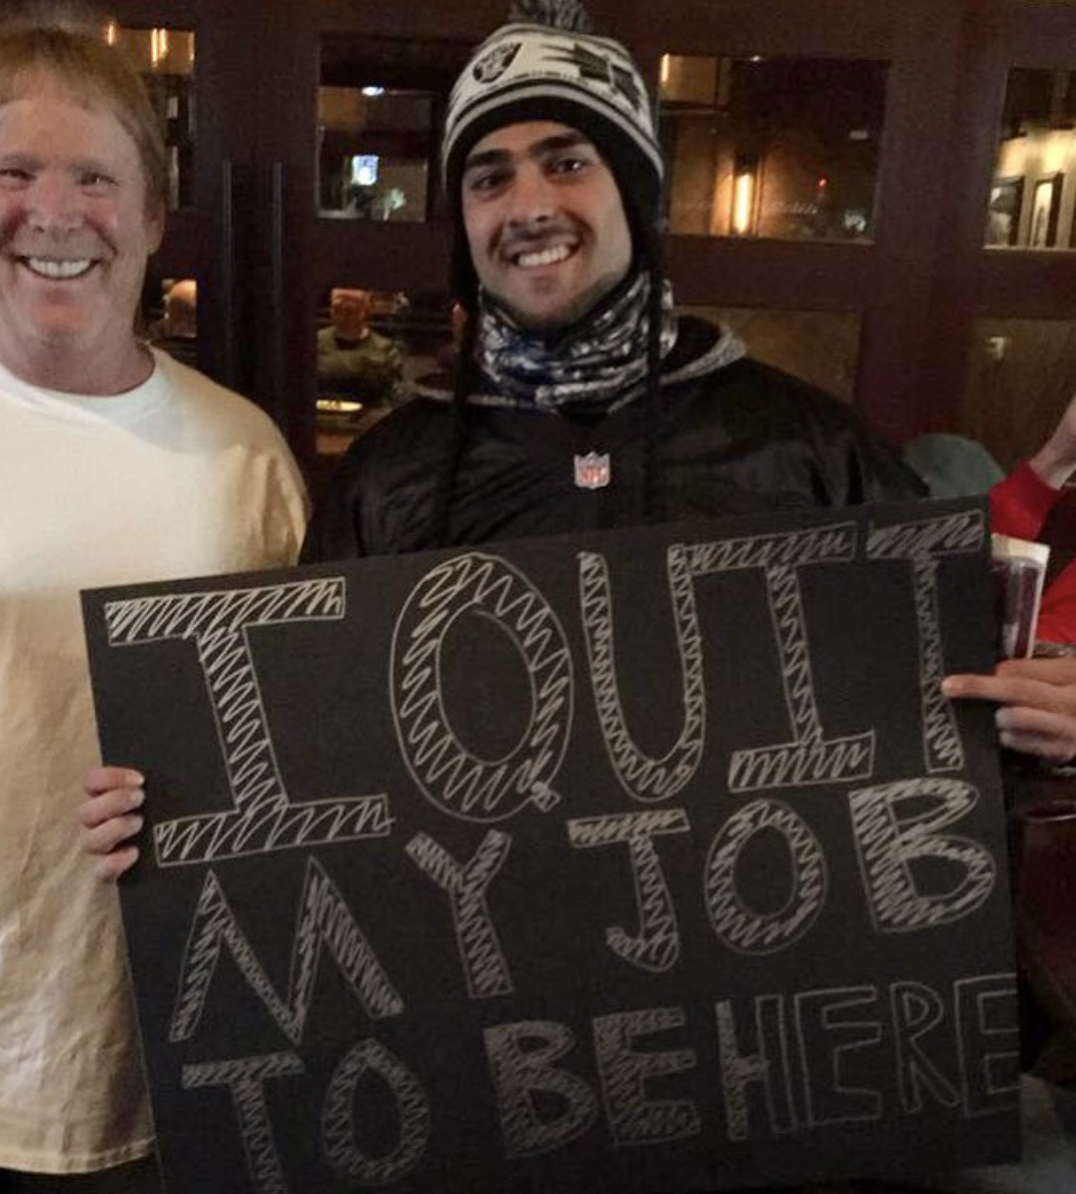 NFL
I QUIT
MY JOB
TO BE HERE